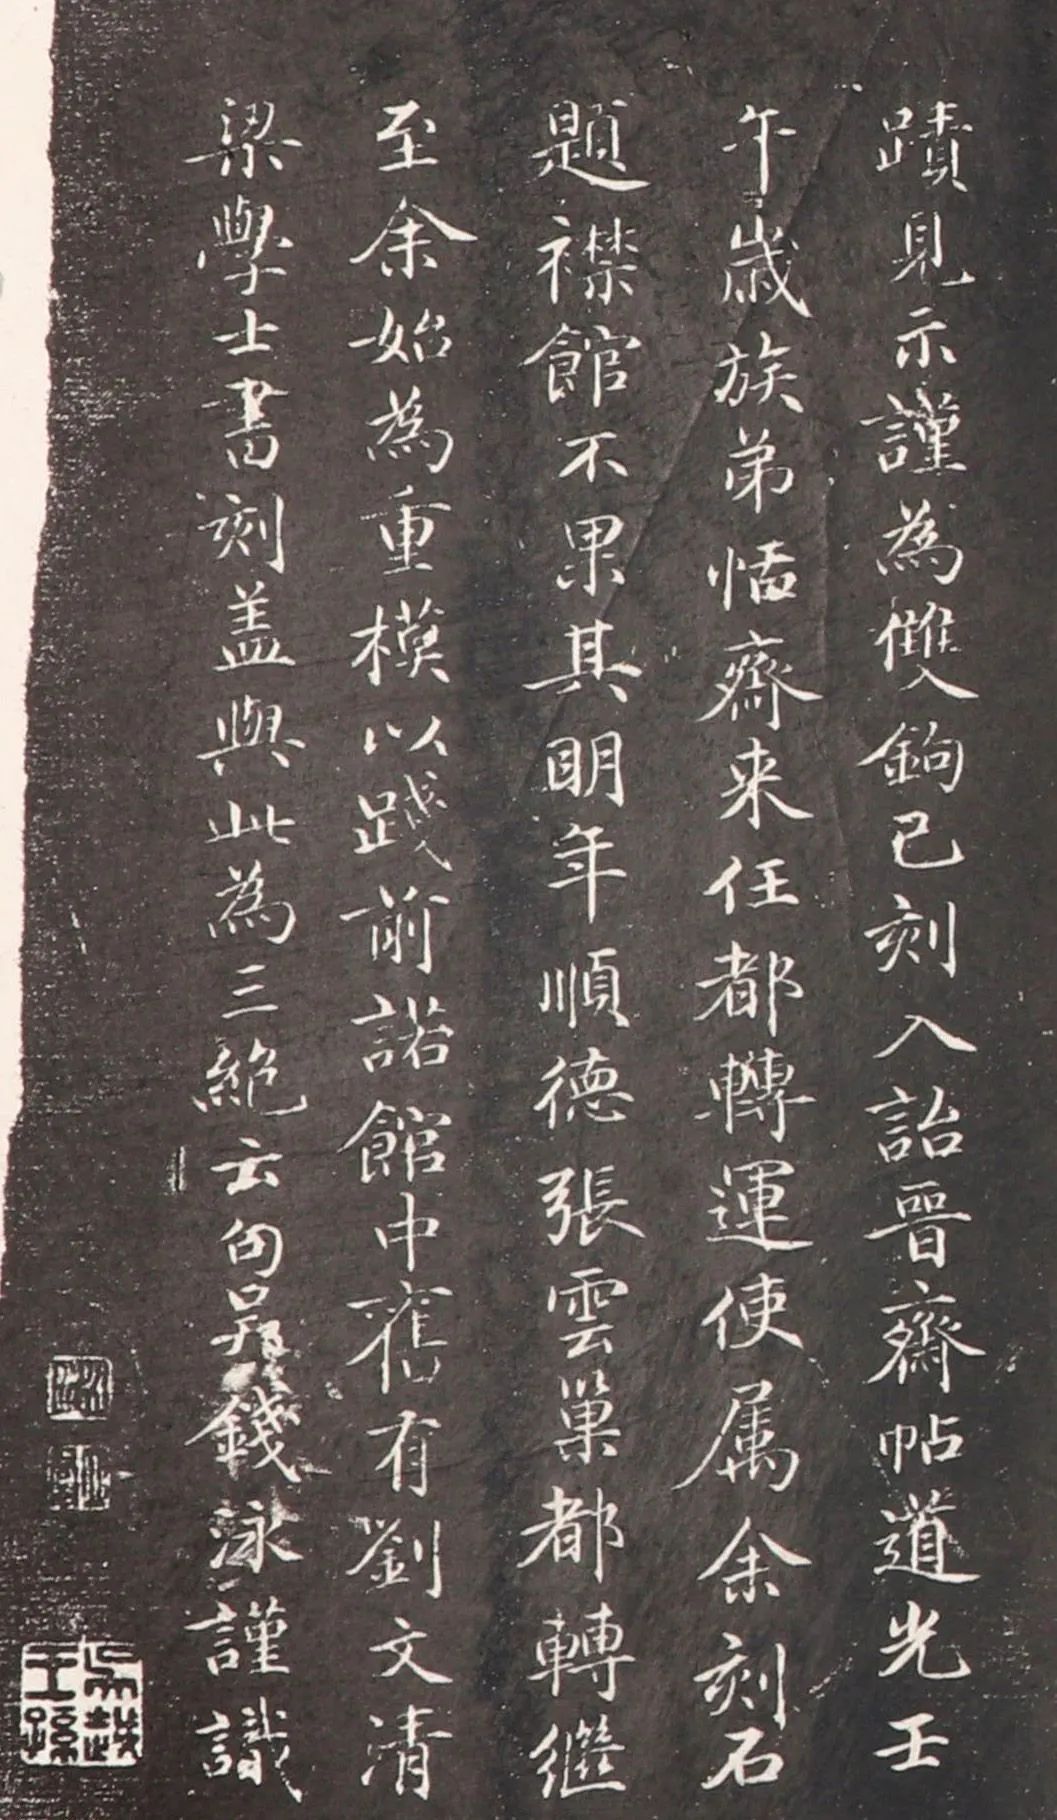 蹟見示謹為雙鉤已刻入詒晉齋帖道光壬
午歲族弟恬齋来任都轉運使属余刻石
題襟館不果其明年順德張雲巢都轉繼
至余始為重模以踐前諾館中舊有劉文清
梁學士書刻盖與此為三絕云勾吳錢泳謹識